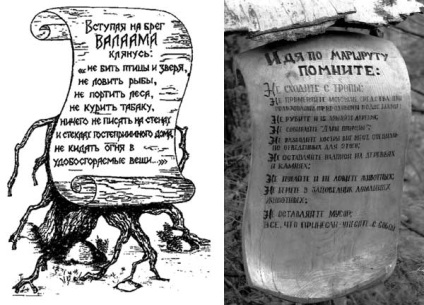 Вступая на брег
ВАЛААМА
клянусь:
«не бить птицы и зверя,
не ловить рыбы,
не портить леса,
не курить табаку,
ничего не писать на стенах
и стеклах гостеприимного дома,
не кидать огня в
удобосгораемые вещи...»
Идя по маршруту
помните:
Не сходите с тропы;
Не применяйте моющие средства при
Не рубите и не ломайте деревья;
Не собирайте "дары природы";
Не разводите костры вне мест, специально
не отведенных для этого;
Не оставляйте надписи на деревьях
и камнях;
Не пугайте и не ловите животных;
Не берите в заповедник домашних
животных;
Не оставляйте мусор;
Все, что принесли - унесите с собой